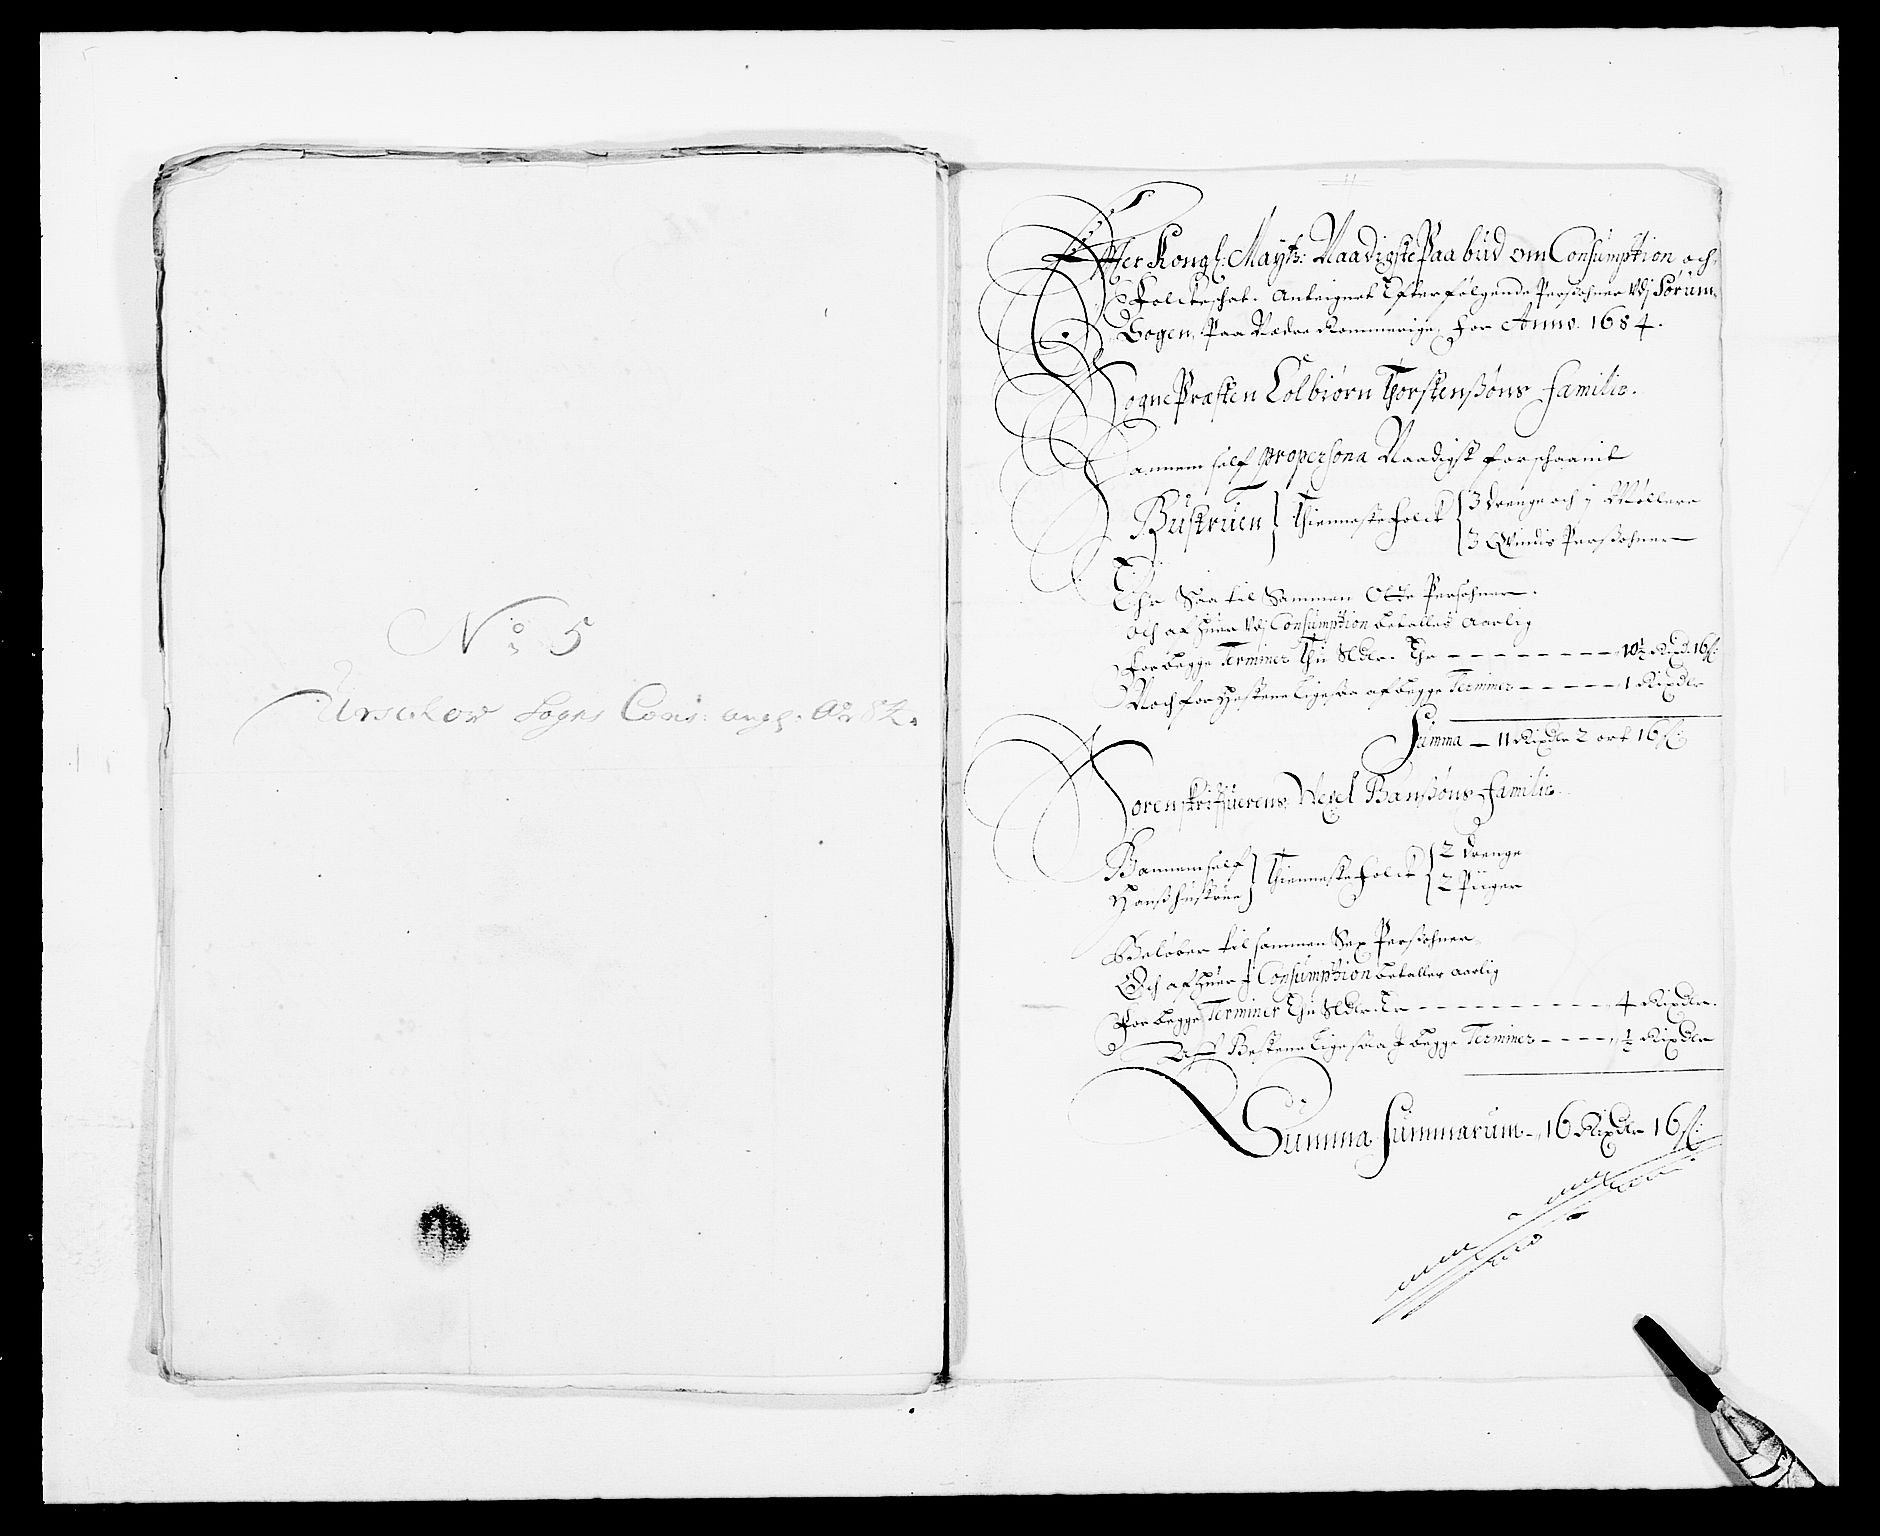 No 5
Urschow Sogns Cons: ang: Ao 84.
Efter Kongl: Mayts: Naadigste Paabud om Consumption och
Folckeschat. Anteignet Efterfølgende Persohner Udj Sørum
Sogen, Paa Nædre Rommerige, for Anno. 1684.
SognePræsten Colbiørn Thorstensøns familie.
Hannem self propersona Naadigst forschaanit
Hustruen } Thienneste Folck { 3 Drenge och 1 Møllere
3 Qvindis Persohner
Ehr Saa til Sammen Otte Persohner.
Och af huer Udj Consumption betalles aarlig
For begge Terminer Thu Sldlr. Ehr - - - - 10½ Rixd. 16 s:
Noch for Hestene Ligesaa af begge Terminer - - - - 1 Rixdlr
Summa - 11 Rixdlr 2 ort 16 s:
Sorenskriffuerens Wexel Hansøns familie.
Hannem self } Thienneste Folck { 2 Drenge
Hans hustrue } { 2 Piiger
Beløber til sammen Sex Persohner
Och af huer J Consumption betalles aarlig
For begge Terminer Thu Sldlr. Er - - - - 4 Rixdlr.
Aff Hestene Ligesaa J begge Terminer - - - - ½ Rixdlr
Summa Summarum - 16 Rixdlr 16 s: